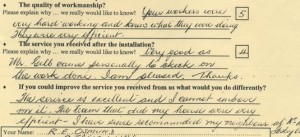 • The quality of workmanship?
Please explain why ... we really would like to know! Your workers were 5
very hard working and knew what they were doing
They were very efficient.
• The service you received after the installation?
Please explain why ... we really would like to know! Very good as 4
Mr Culb came personally to check on
the work done. I am pleased. Thanks.
• If you could improve the service you received from us what would you do differently?
The service is excellent and I cannot improve
on it. The team that did my house were very
efficient - I have even recommended my neighbour at N°
Your Name: R.E.